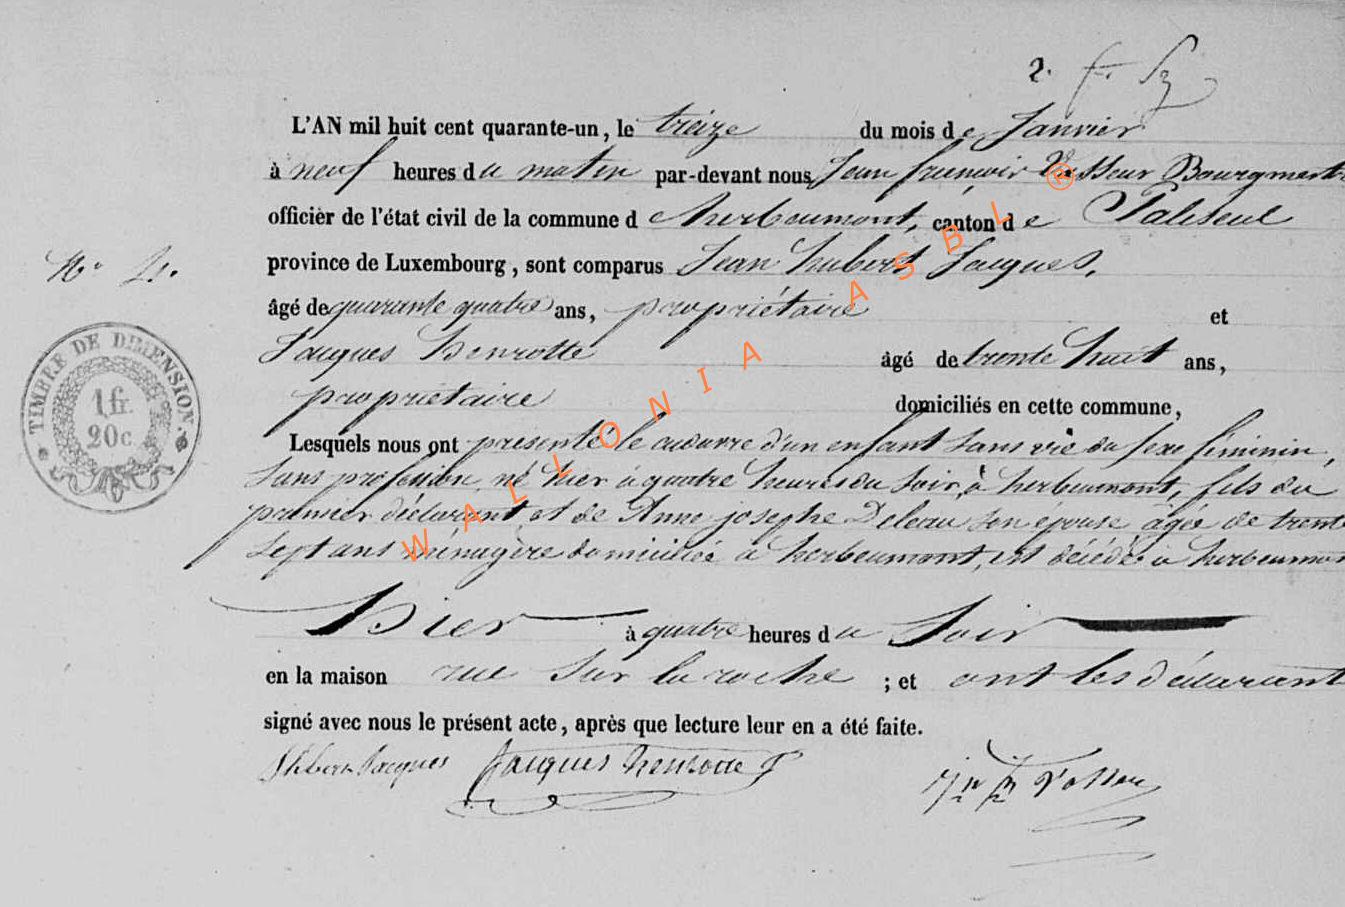 2.
L'AN mil huit cent quarante-un, le treize du mois de Janvier
à neuf heures du matin par-devant nous Jean françois Bourgmestre
officier de l'état civil de la commune de herbeumont, canton de Paliseul
province de Luxembourg, sont comparus Jean hubert Jacques,
N°
âgé de quarante quatre ans, propriétaire et
Jacques henrotte âgé de trente huit ans,
TIMBRE DE DIMENSION.
1 fr.
20 c.
propriétaire domiciliés en cette commune,
Lesquels nous ont présenté le cadavre d'un enfant sans vie du sexe féminin,
sans profession né hier à quatre heures du soir, à herbeumont, fils du
premier déclarant et de Anne josephe Deleau son épouse âgée de trente
sept ans ménagère domiciliée à herbeumont, est décédé à herbeumont
hier à quatre heures du soir
en la maison rue sur la roche ; et ont les déclarant
signé avec nous le présent acte, après que lecture leur en a été faite.
Jhbert Jacques Jacques henrotte
WALLONIA ASBL ®